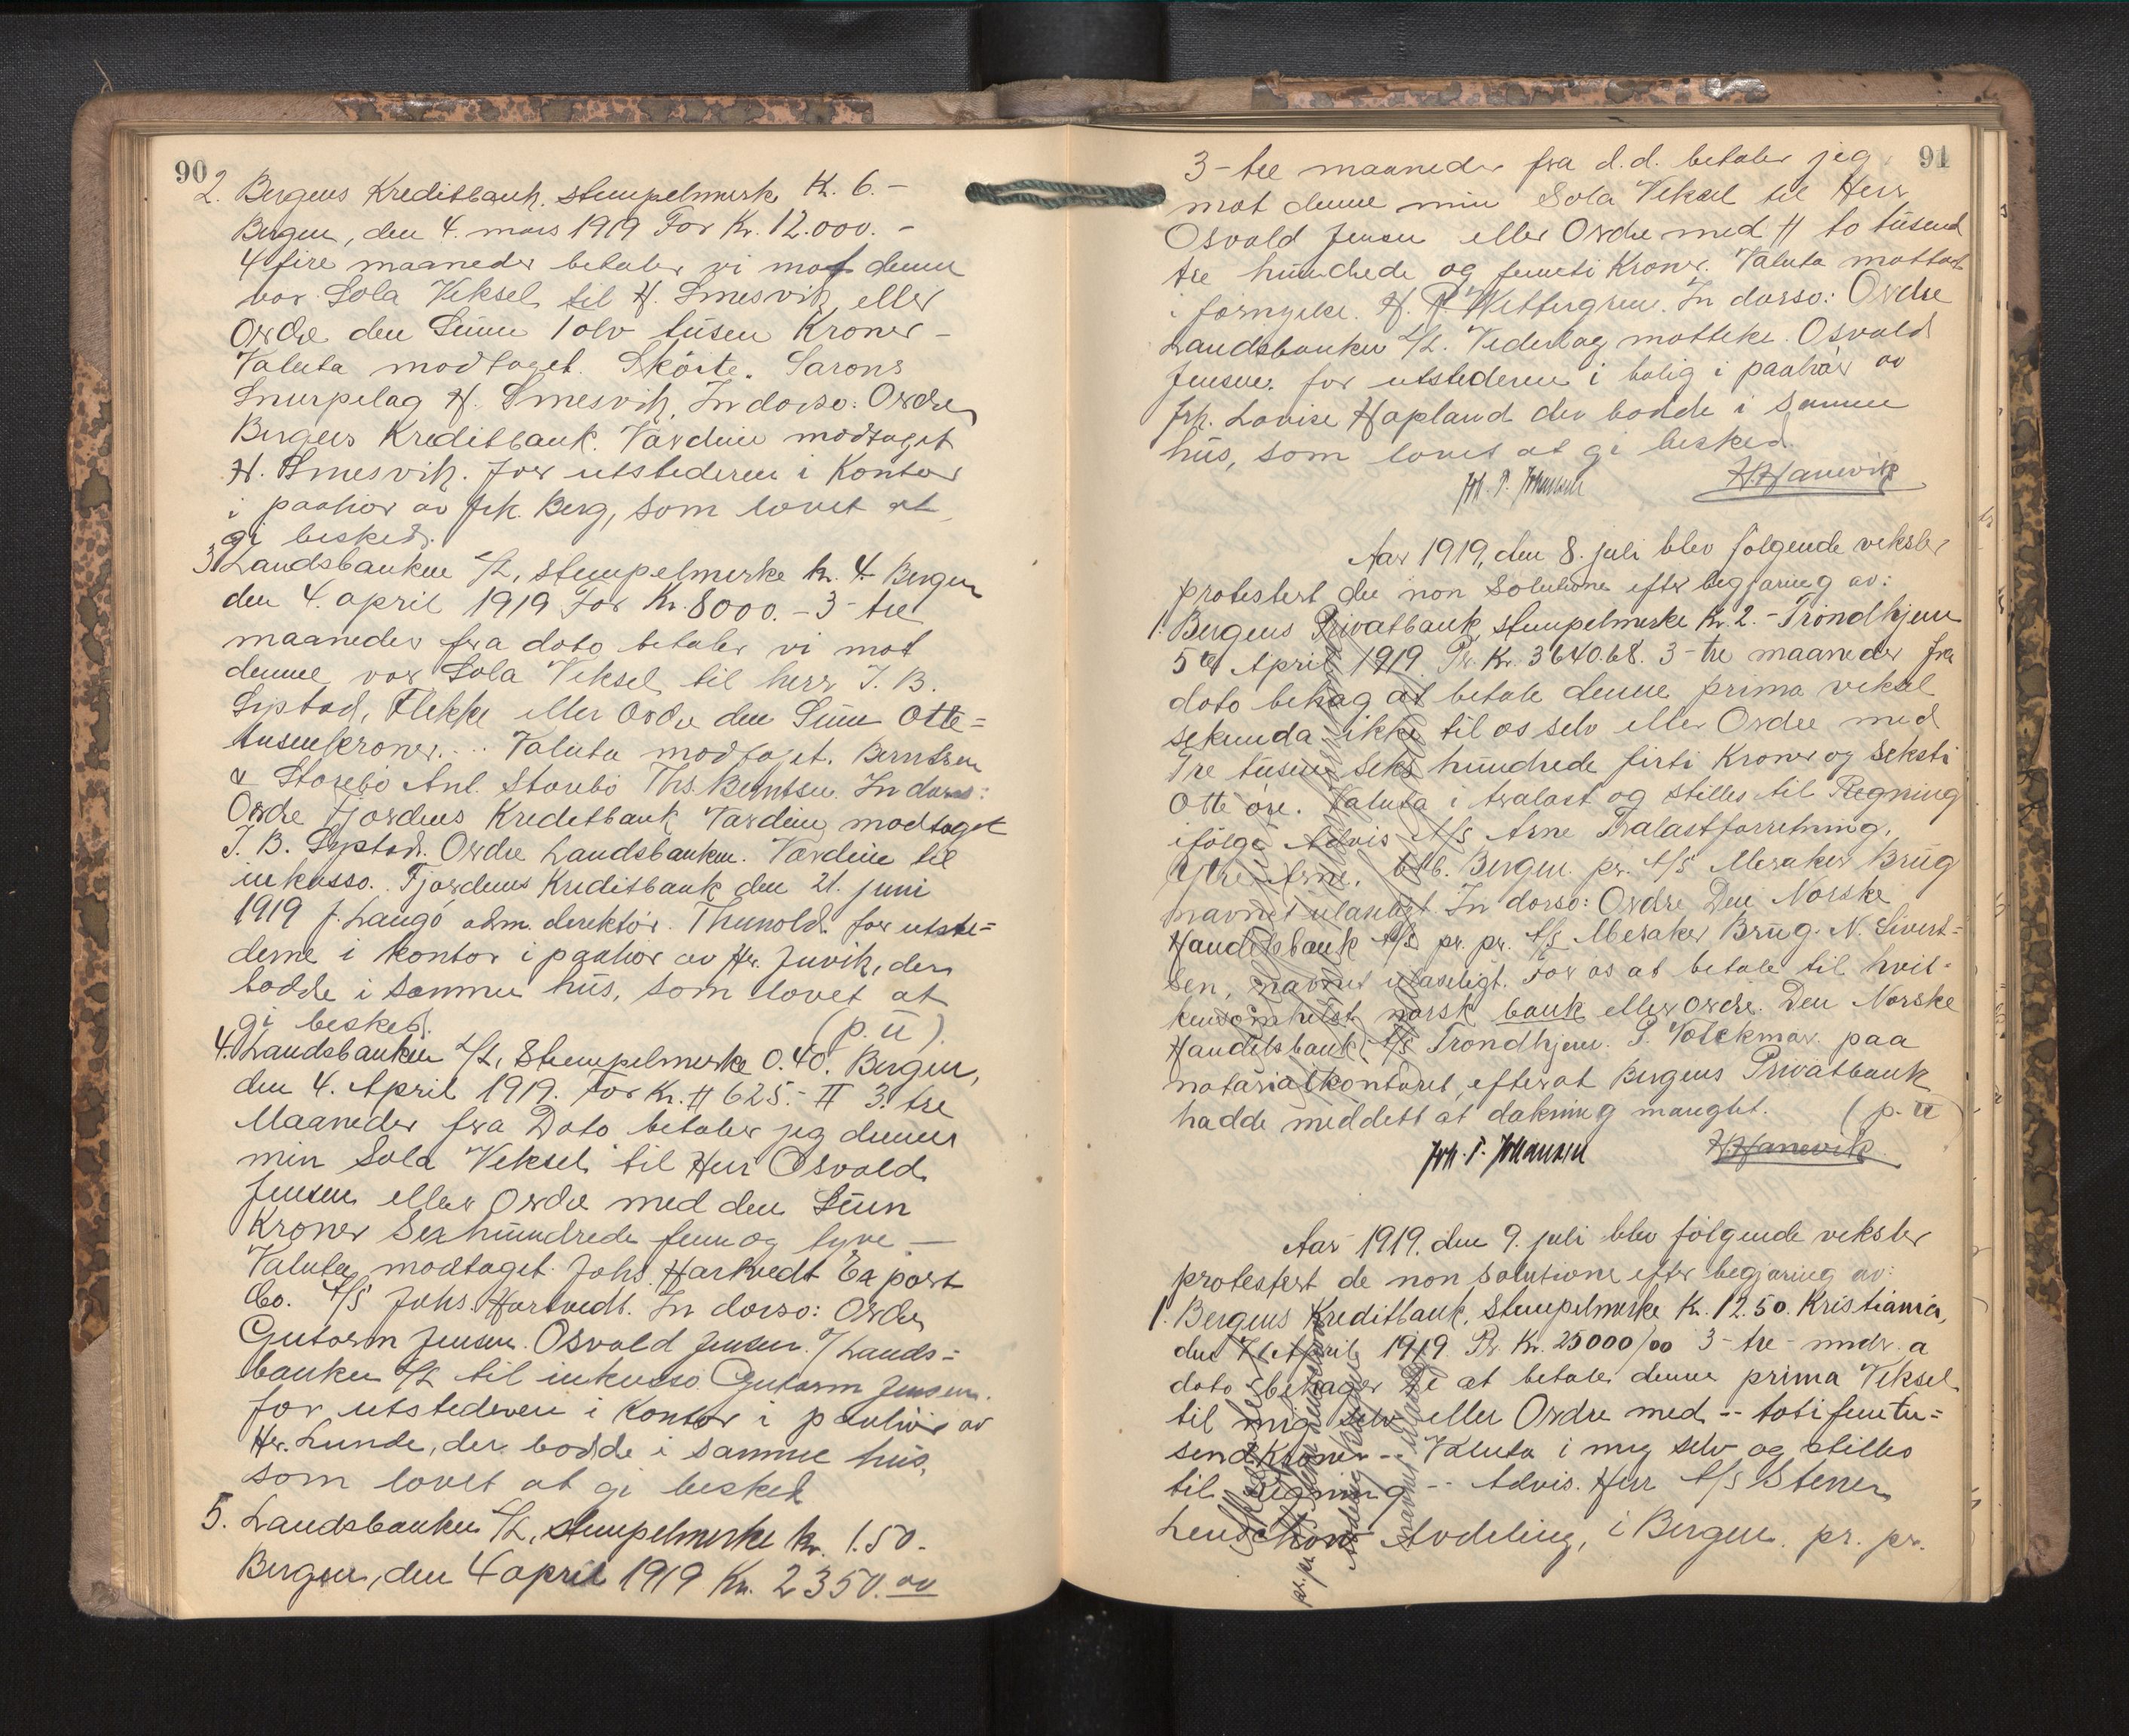 90
2. Bergens Kreditbank. stempelmerke K. 6.-
Bergen, den 4. mars 1919 For Kr. 12.000. -
4 fire maaneder betaler vi mot denne
vor Sola Veksel til H. Smesvik eller
Ordre den Sum Tolv tusen Kroner -
Valuta modtaget. Skörte. Sarons
Snurpelag H. Smesvik. In dorso: Ordre
Bergens Kreditbank. Værdien modtaget
H. Smesvik. For utstederen i Kontor
i paahør av frk. Berg, som lovet at
gi besked.
3. Landsbanken A/L, stempelmerke kr. 4. Bergen
den 4. april 1919 For Kr. 8000. - 3 - tre
maaneder fra dato betaler vi mot
denne vor Sola Veksel til herr J. B.
Flekke eller Ordre den Sum Otte=
tusenkroner. ... Valuta modtaget. Berntsen
& Storebø Anl. Storebø Ths. Berntsen. In dorso:
Ordre Fjordenes Kreditbank Værdien modtaget
J. B. Ordre Landsbanken. Værdien til
inkasso. Fjordenes Kreditbank den 21. juni
1919 J. Langø adm. direktør. Thunold. for utste=
derne i kontor i paahør av Hr. Juvik, der
bodde i samme hus, som lovet at
gi besked. (p. ū).
4. Landsbanken A/L, Stempelmerke 0.40. Bergen,
den 4. April 1919. For Kr. # 625.- # 3. tre
Maaneder fra Dato betaler jeg denne
min Sola Veksel til Herr Osvald
Jensen eller Ordre med den Sum
Kroner Sexhundrede fem og tyve. -
Valuta modtaget. Johs. Hartvedt Export
Co. A/S Johs. Hartvedt. In dorso: Ordre
Gutorm Jensen. Osvald Jensen. O/ Lands=
banken A/L til inkasso Gutorm Jensen.
for utstederen i Kontor i paahør av
Hr. Lunde, der bodde i samme hus,
som lovet at gi besked
5. Landsbanken A/L, stempelmerke kr. 1.50.
Bergen, den 4 april 1919 Kr. 2350.00
91
3 - tre maaneder fra d.d. betaler jeg
mot denne min Sola Veksel til Herr
Osvald Jensen eller Ordre med # to tusend
tre hundrede og femti Kroner. Valuta mottat
i fornyelse. H. P. Wettergren. In dorso: Ordre
Landsbanken A/L. Vederlag mottat. Osvald
Jensen. for utstederen i bolig i paahør av
frk. Lovise Hopland der bodde i samme
hus, som lovet at gi besked.
Joh. P. Johansen H. Hanevik
Aar 1919, den 8. juli blev følgende veksler
protestert de non solutione efter begjæring av:
1. Bergens Privatbank, stempelmerke Kr. 2.- Trondhjem
5te April 1919. Pr. Kr. 3640.68. 3 - tre maaneder fra
dato behag at betale denne prima veksel
sekunda ikke til os selv eller Ordre med
Tre tusen seks hundrede firti Kroner og seksti
Otte øre. Valuta i trælast og stilles til Regning
ifølge Advis A/S Arne Trælastforretning,
Ytre Arne. Bergen. pr. A/S Meraker Brug
navnet ulæseligt. In dorso: Ordre Den Norske
Handelsbank A/S pr. pr. A/S Meraker Brug. N. Sivert=
sen, navnet ulæseligt. For os at betale til hvil=
kensomhelst norsk bank eller ordre. Den Norske
Handelsbank A/S Trondhjem. P. Volckmar. paa
notarialkontoret, efterat Bergens Privatbank
hadde meddelt at dækning manglet. (p. ū)
Joh. P. Johansen H. Hanevik
Aar 1919. den 9. juli blev følgende veksler
protestert de non solutione efter begjæring av:
1. Bergens Kreditbank, Stempelmerke K. 12.50. Kristiania,
den 7. April 1919. Pr. Kr. 25000/00 3 - tre - mndr. a
dato behager De at betale denne prima Veksel
til mig selv eller Ordre med -- toti fem tu=
send Kroner -- Valuta i mig selv og stilles
til Regning -- Advis. Herr A/S Stener
Lenschow Avdeling, i Bergen. pr. pr.